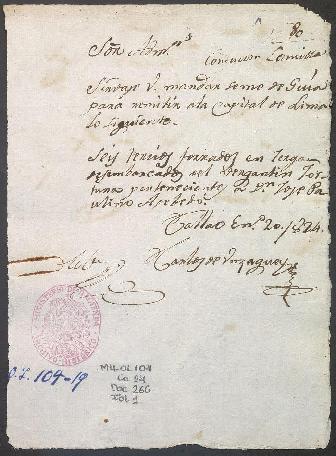 80
Sor Adm.or
Comision
Sirvase V. mandar seme de Guia
para remitir a la capital de Lima
lo siguiente.
Seis tercios forrados en gerga
desembarcados del Bergantin For-
tuna perteneciente a Dn Jose Pa-
ulino
Callao En.o 20. 1824.
Carlos de
O.L. 104-19
MH-OL 104
Ca 94
Doc 266
Fol 1